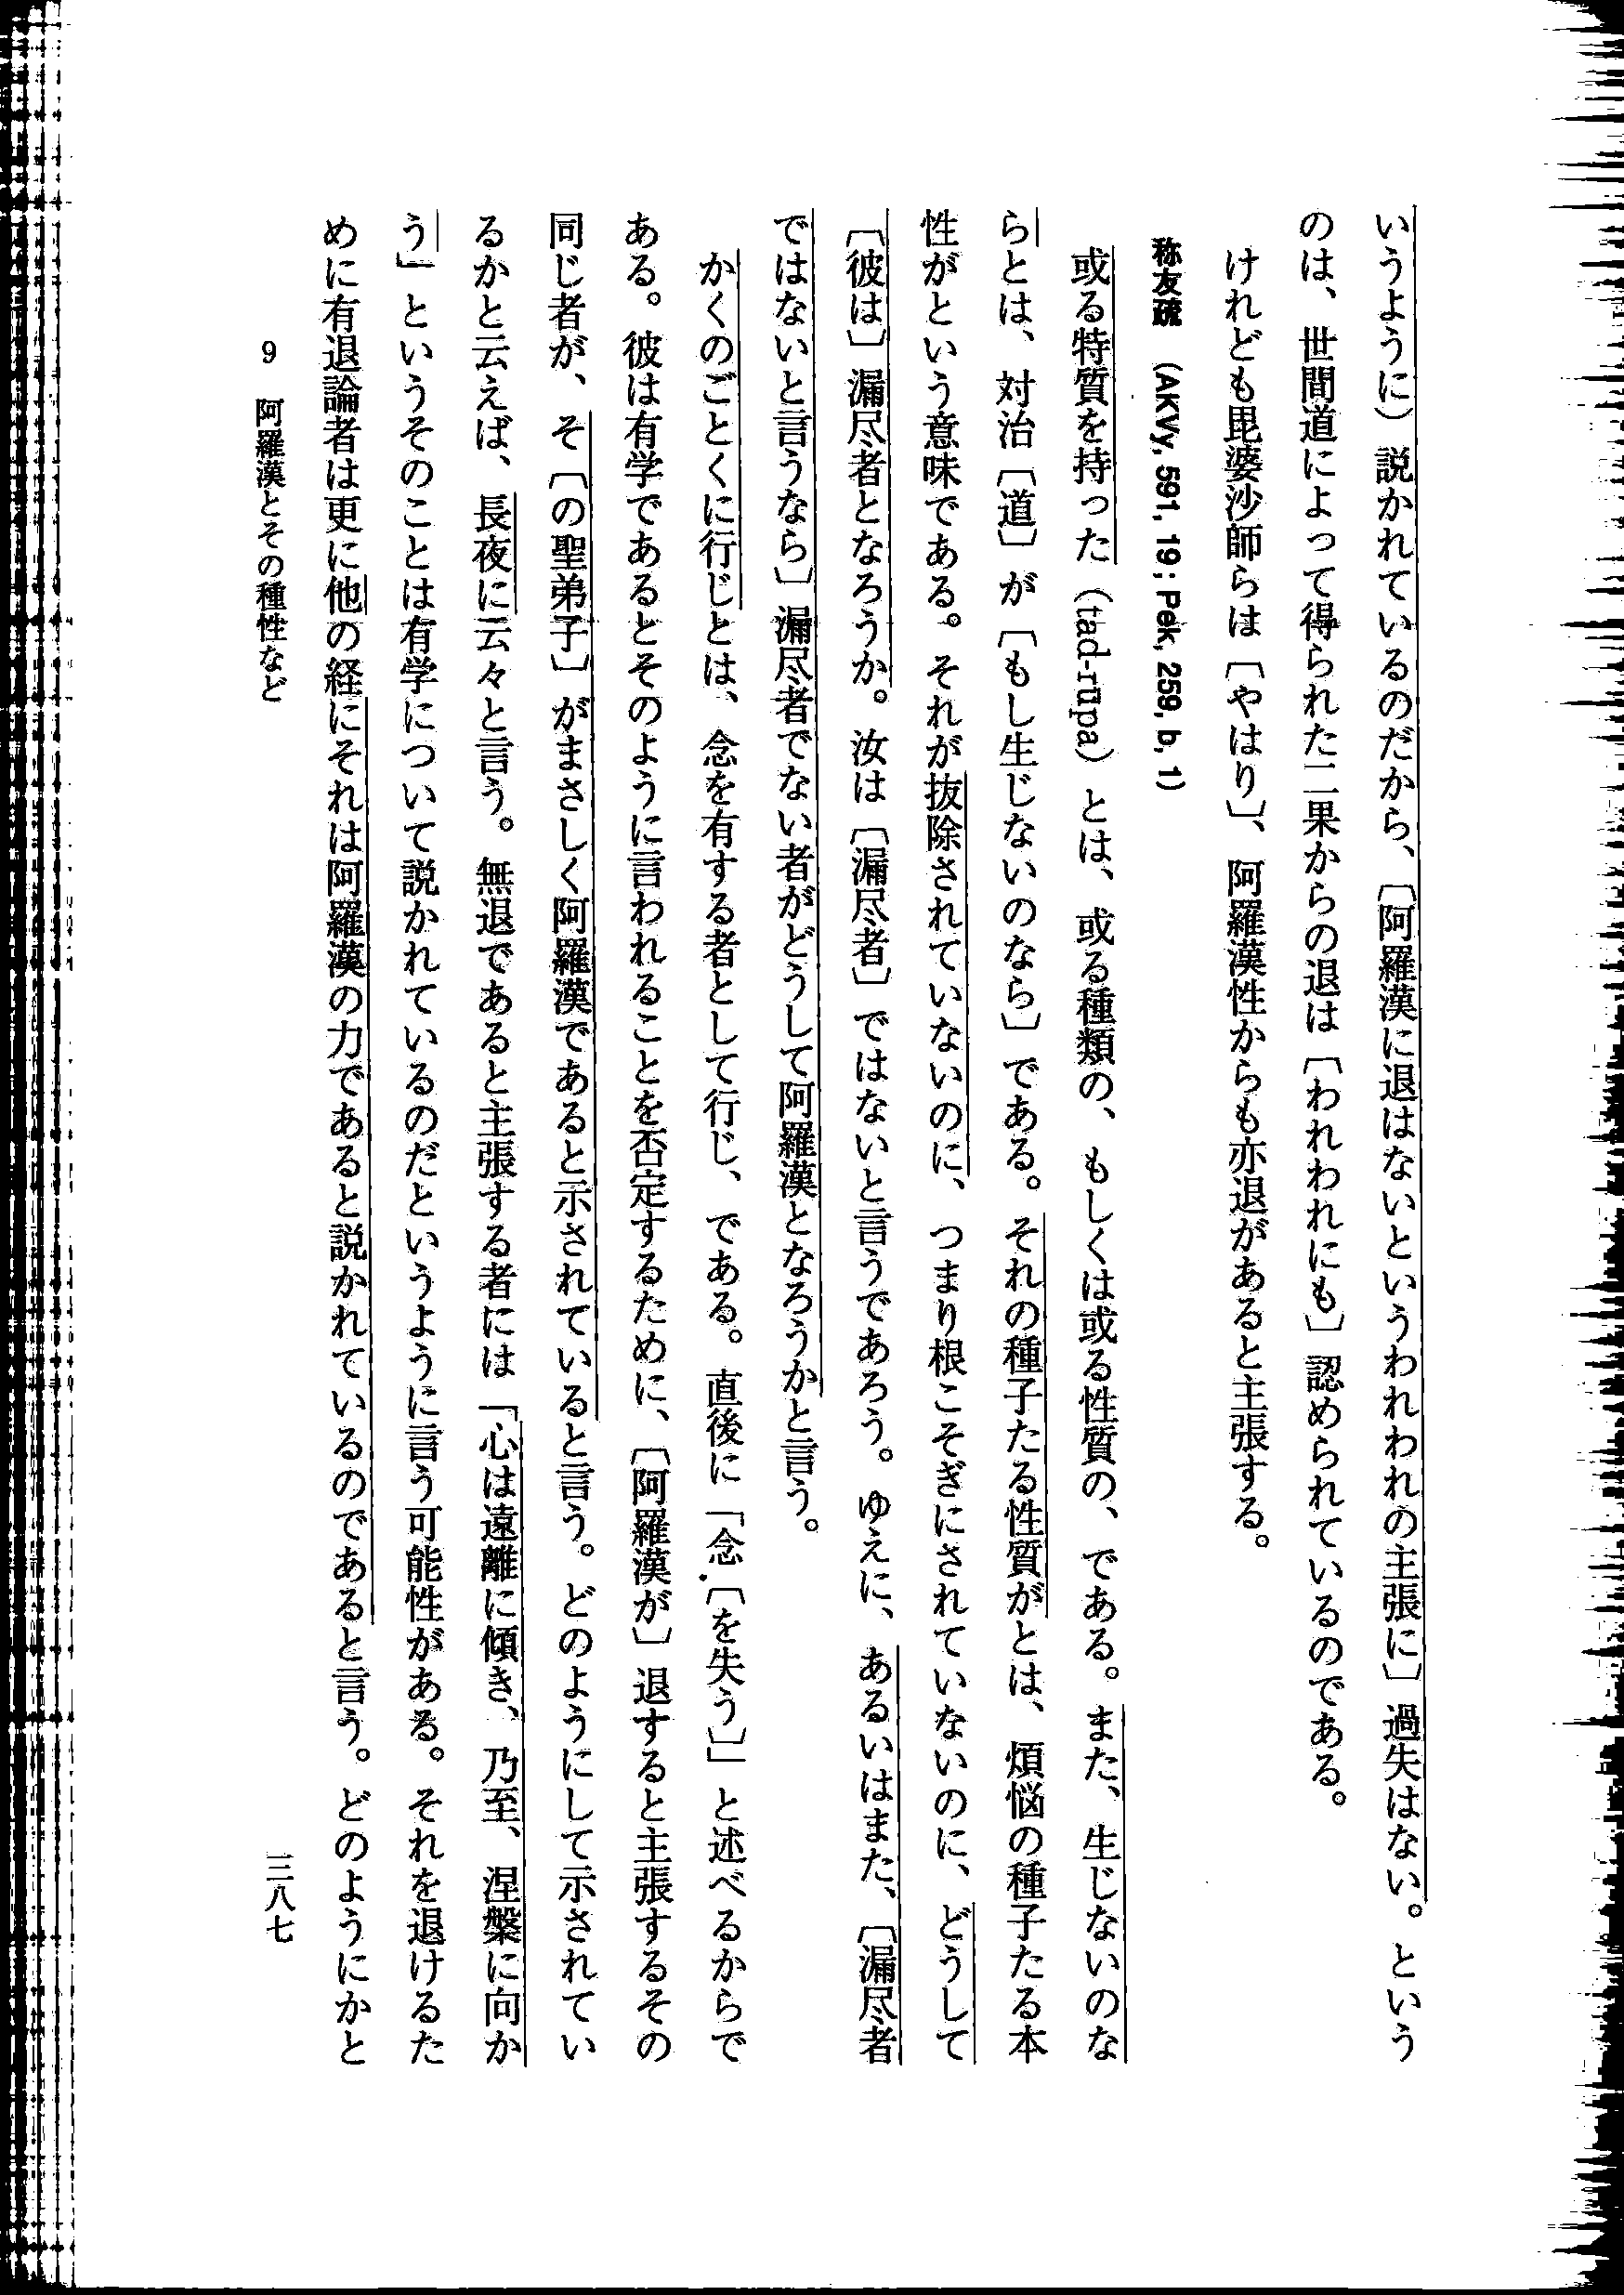 いうように）説かれているのだから、〔阿羅漢に退はないというわれわれの主張に〕過失はない。という
のは、世間道によって得られた二果からの退は〔われわれにも〕認められているのである。
けれども毘婆沙師らは〔やはり〕、阿羅漢性からも亦退があると主張する。
称友疏　（AKVy, 591, 19 ; Pek, 259, b, 1）
或る特質を持った（tad-rūpa）とは、或る種類の、もしくは或る性質の、である。また、生じないのな
らとは、対治〔道〕が〔もし生じないのなら〕である。それの種子たる性質がとは、煩悩の種子たる本
性がという意味である。それが抜除されていないのに、つまり根こそぎにされていないのに、どうして
〔彼は〕漏尽者となろうか。汝は〔漏尽者〕ではないと言うであろう。ゆえに、あるいはまた、〔漏尽者
ではないと言うなら〕漏尽者でない者がどうして阿羅漢となろうかと言う。
かくのごとくに行じとは、念を有する者として行じ、である。直後に「念〔を失う〕」と述べるからで
ある。彼は有学であるとそのように言われることを否定するために、〔阿羅漢が〕退すると主張するその
同じ者が、そ〔の聖弟子〕がまさしく阿羅漢であると示されていると言う。どのようにして示されてい
るかと云えば、長夜に云々と言う。無退であると主張する者には「心は遠離に傾き、乃至、涅槃に向か
う」というそのことは有学について説かれているのだというように言う可能性がある。それを退けるた
めに有退論者は更に他の経にそれは阿羅漢の力であると説かれているのであると言う。どのようにかと
9　阿羅漢とその種性など
三八七